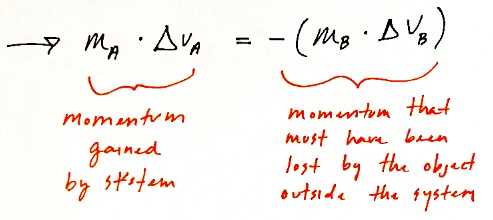 → m_A · Δv_A = -(m_B · Δv_B)
momentum
gained
by system
momentum that
must have been
lost by the object
outside the system